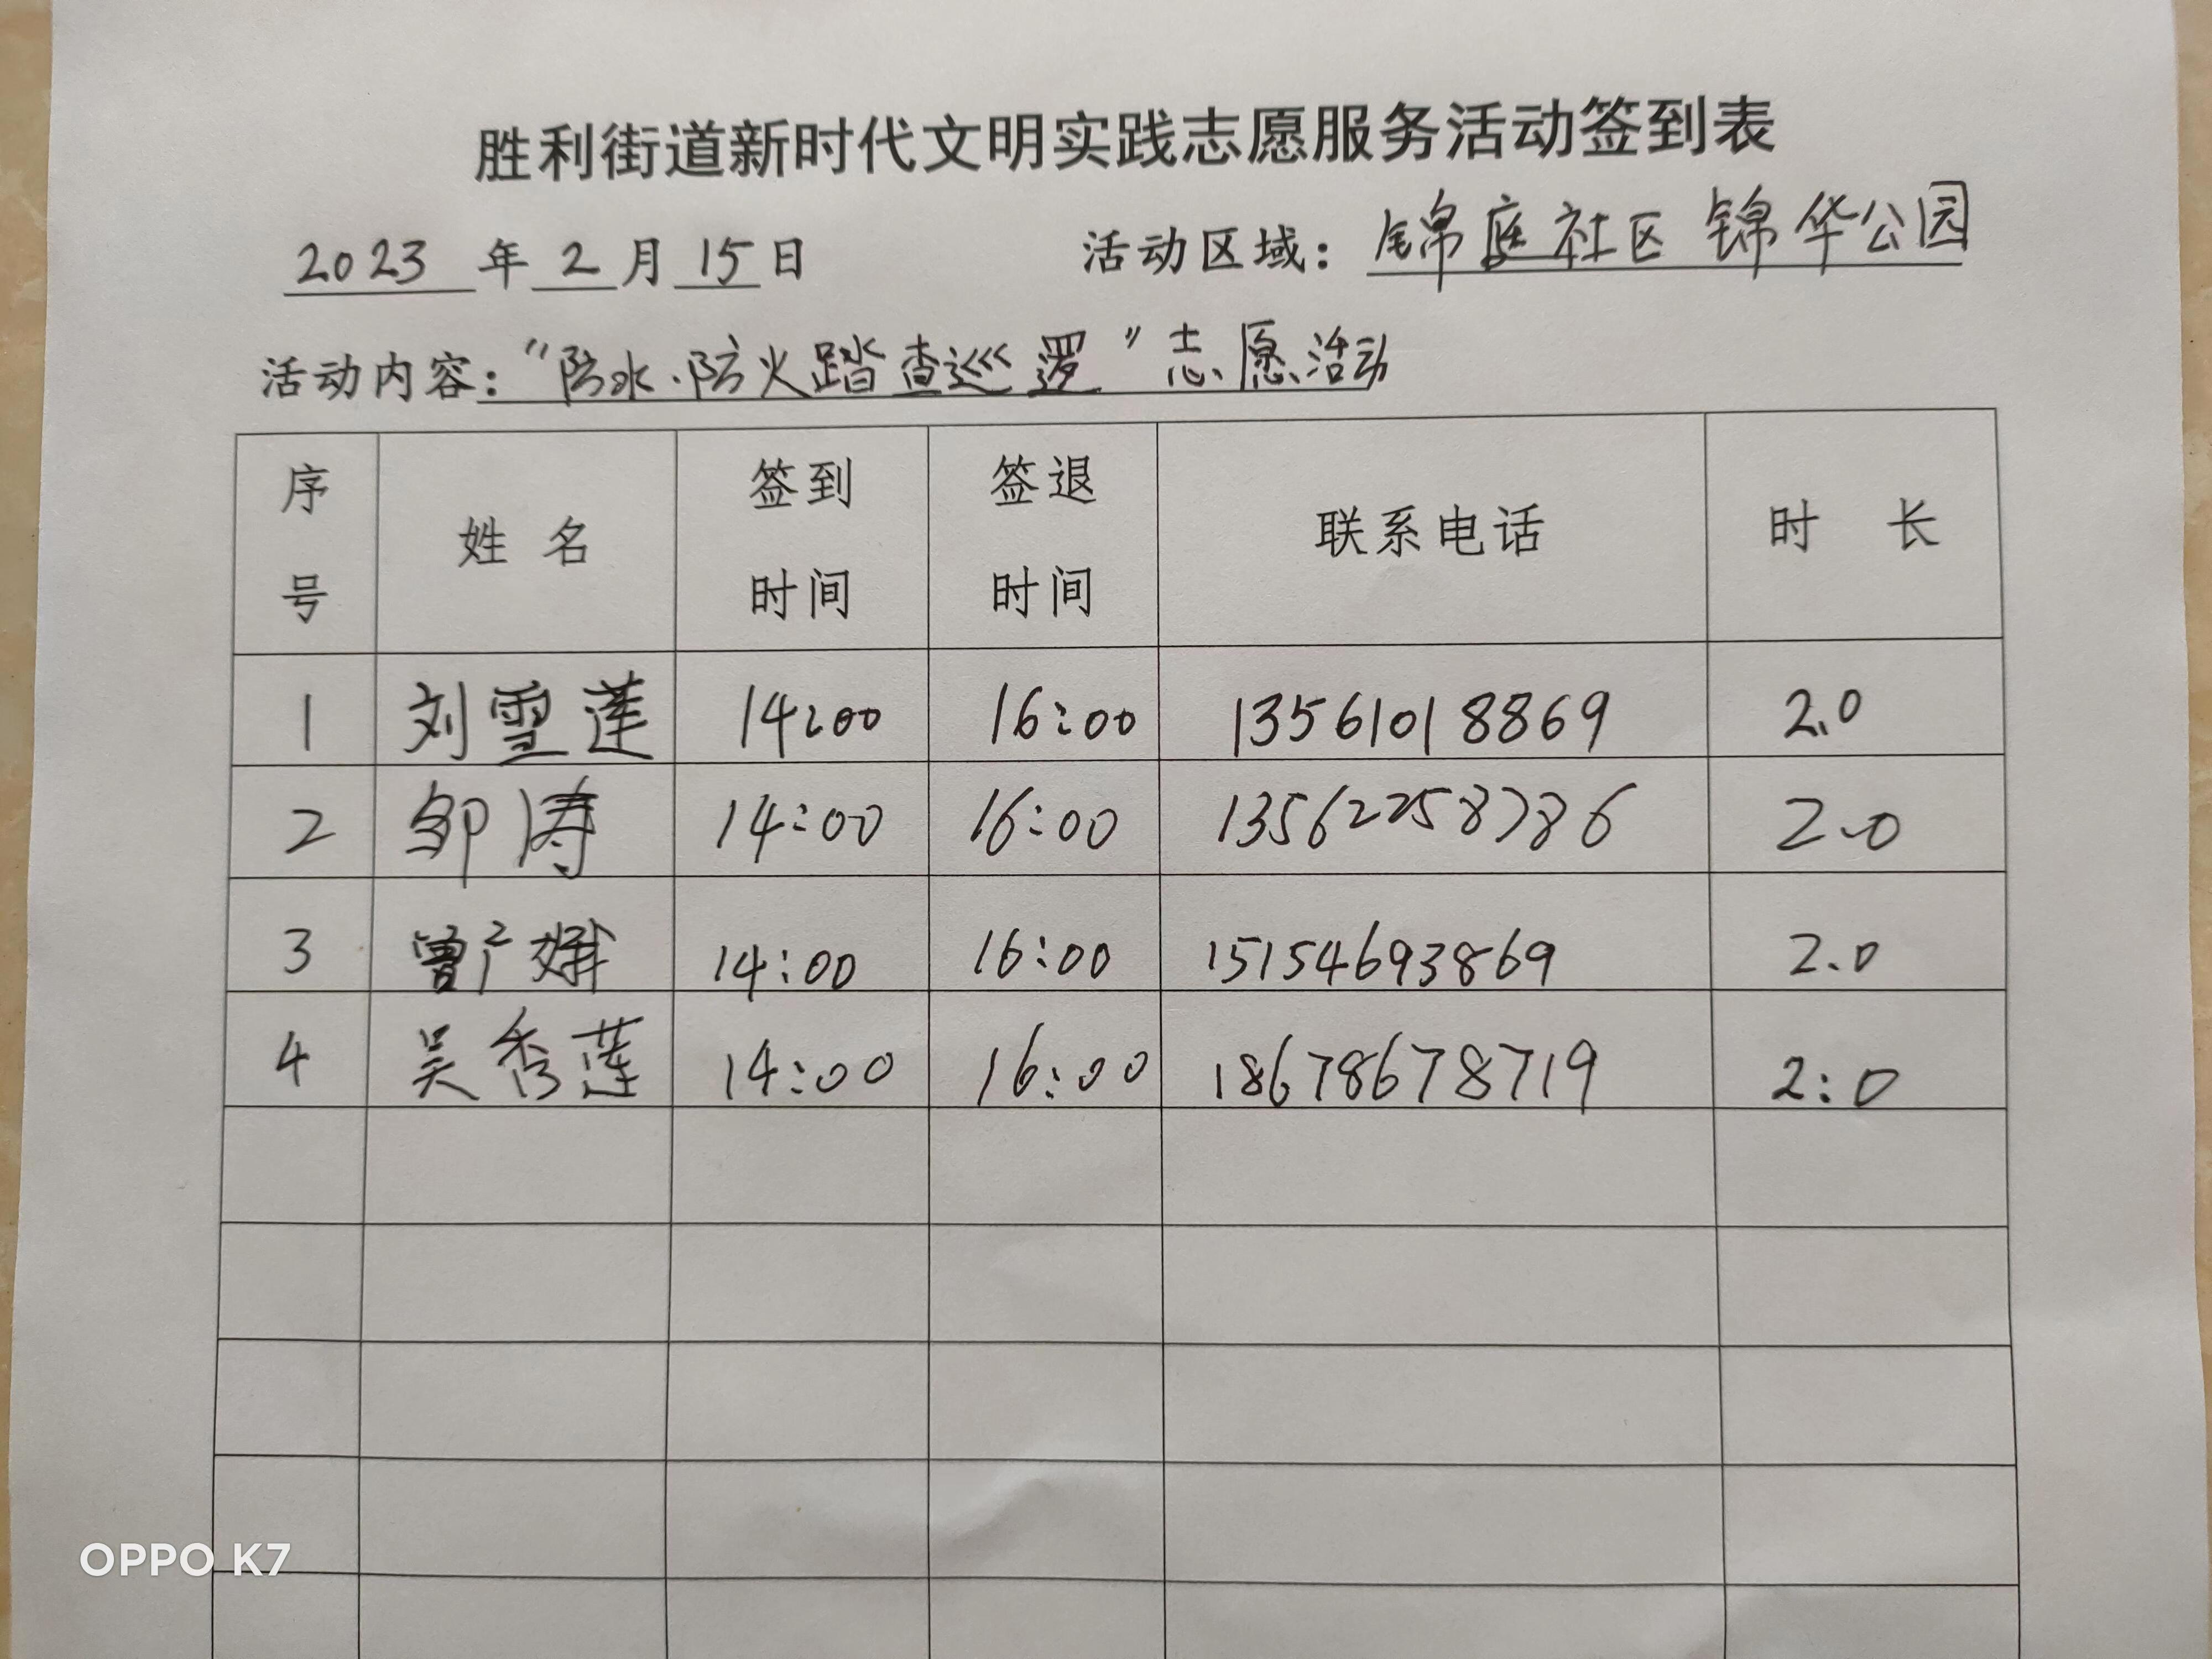 胜利街道新时代文明实践志愿服务活动签到表
2023 年 2 月 15 日 活动区域：锦庭社区 锦华公园
活动内容："防水.防火踏查巡逻"志愿活动
序号 姓名 签到时间 签退时间 联系电话 时长
1 刘雪莲 14:00 16:00 13561018869 2.0
2 邹涛 14:00 16:00 13562258786 2.0
3 曾广娥 14:00 16:00 15154693869 2.0
4 吴秀莲 14:00 16:00 18678678719 2:0
OPPO K7